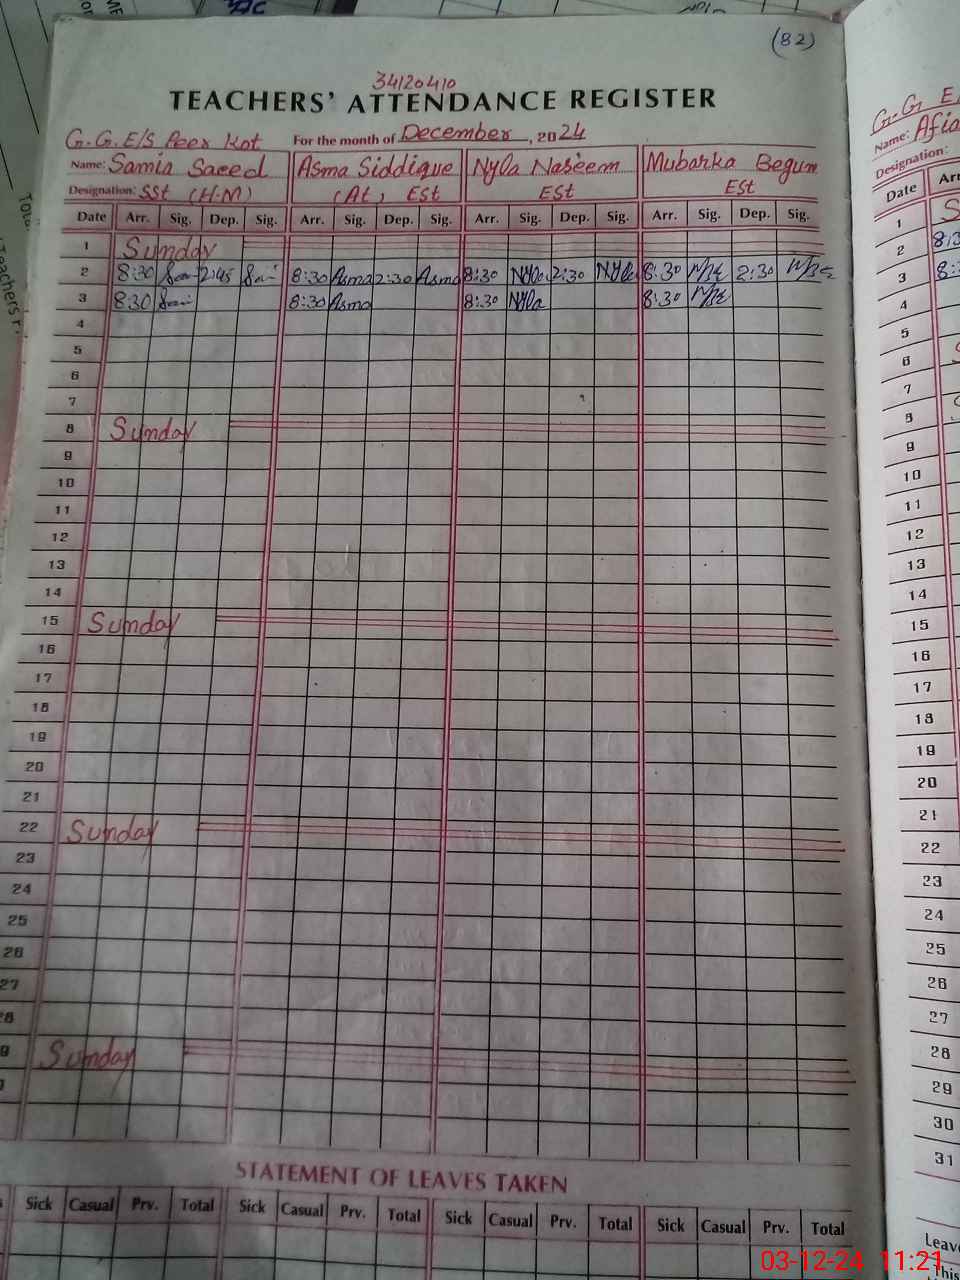 (82)
34120410
TEACHERS' ATTENDANCE REGISTER
G.G.E/S Peer Kot For the month of December, 2024
Name: Samia Saeed Asma Siddique Nyla Naseem Mubarka Begum
Designation: SSt (H.M) (At) Est Est Est
Date Arr. Sig. Dep. Sig. Arr. Sig. Dep. Sig. Arr. Sig. Dep. Sig. Arr. Sig. Dep. Sig.
1 Sunday
2 8:30 2:45 8:30 Asma 2:30 Asma 8:30 Nyla 2:30 Nyla 8:30 2:30
3 8:30 8:30 Asma 8:30 Nyla 8:30
4
5
6
7
8 Sunday
9
10
11
12
13
14
15 Sunday
16
17
18
19
20
21
22 Sunday
23
24
25
26
27
28
9 Sunday
STATEMENT OF LEAVES TAKEN
Sick Casual Prv. Total Sick Casual Prv. Total Sick Casual Prv. Total Sick Casual Prv. Total
G.G E/
Name: Afia
Designation:
Date Arr
1 S
2 8:3
3 8:
4
5
6 S
7
8 S
9
10
11
12
13
14
15
16
17
18
19
20
21
22
23
24
25
26
27
28
29
30
31
Leave
This
03-12-24 11:21